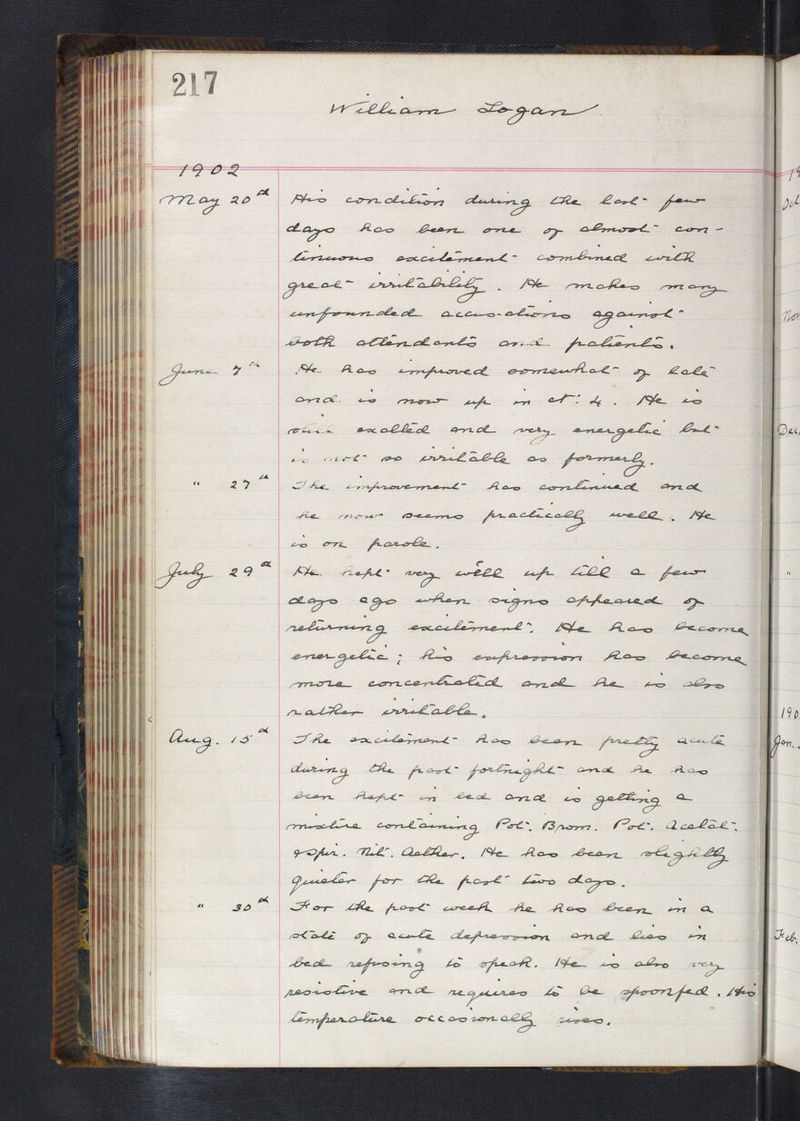 217
William Logan
1902
May 20th His condition during the last few
days has been one of almost con-
tinuous excitement combined with
great irritability. He makes many
unfounded accusations against
both attendants and patients.
June 7th He has improved somewhat of late
and is now up in at: 4. He is
exalted and very energetic but
is not so irritable as formerly.
" 27th The improvement has continued and
he now seems practically well. He
is on parole.
July 29th He kept very well up till a few
days ago when signs appeared of
returning excitement. He has become
energetic; his expression has become
more concentrated and he is also
rather irritable.
Aug. 15th The excitement has been pretty acute
during the past fortnight and he has
been kept in bed and is getting a
mixture containing Pot. Brom. Pot. Acetat.
& Spir. Nit. Aether. He has been slightly
quieter for the past two days.
" 30th For the past week he has been in a
state of acute depression and lies in
bed refusing to speak. He is also very
resistive and requires to be spoonfed. His
temperature occasionally rises.
19
Oct
Nov
Dec.
"
190
Jan.
Feb.